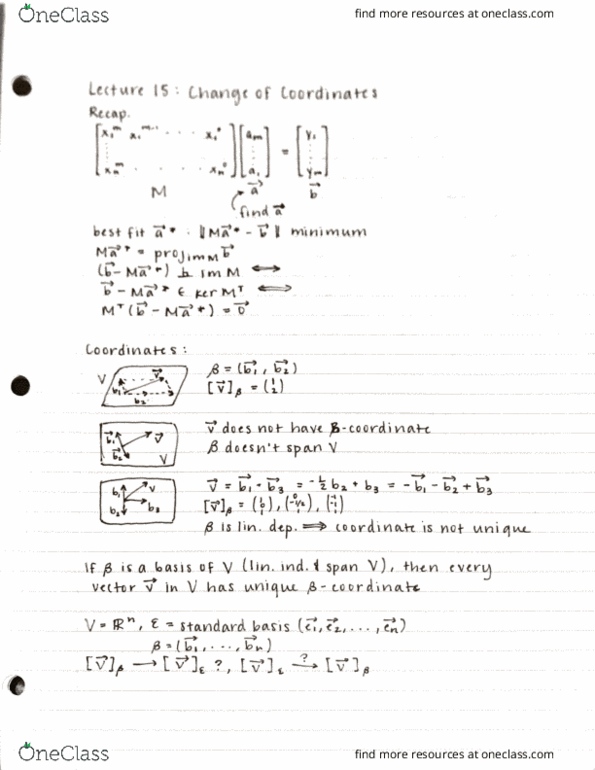 OneClass
find more resources at oneclass.com
Lecture 15: Change of Coordinates
Recap.
[x₁ᵐ x₁ᵐ⁻¹ · · · x₁⁰ ⋮ xₙᵐ · · · xₙ⁰] [aₘ ⋮ a₁] = [y₁ ⋮ yₘ]
M a⃗ b⃗
find a⃗
best fit a⃗* : ‖Ma⃗* - b⃗‖ minimum
Ma⃗* = proj_im M b⃗
(b⃗ - Ma⃗*) ⊥ im M ⟺
b⃗ - Ma⃗* ∈ ker Mᵀ ⟺
Mᵀ(b⃗ - Ma⃗*) = 0⃗
Coordinates:
V b₁ v⃗ b₂
β = (b⃗₁, b⃗₂)
[v⃗]β = (1 2)
b⃗₁ v⃗ b⃗₂ V
v⃗ does not have β-coordinate
β doesn't span V
b₁ v b₂ b₃
v⃗ = b⃗₁ - b⃗₃ = -½b₂ + b₃ = -b⃗₁ - b⃗₂ + b⃗₃
β is lin. dep. ⟹ coordinate is not unique
If β is a basis of V (lin. ind. & span V), then every
vector v⃗ in V has unique β-coordinate
V = ℝⁿ, ℰ = standard basis (e⃗₁, e⃗₂, ..., e⃗ₙ)
β = (b⃗₁, ..., b⃗ₙ)
[v⃗]β → [v⃗]ℰ ?, [v⃗]ℰ →? [v⃗]β
OneClass
find more resources at oneclass.com